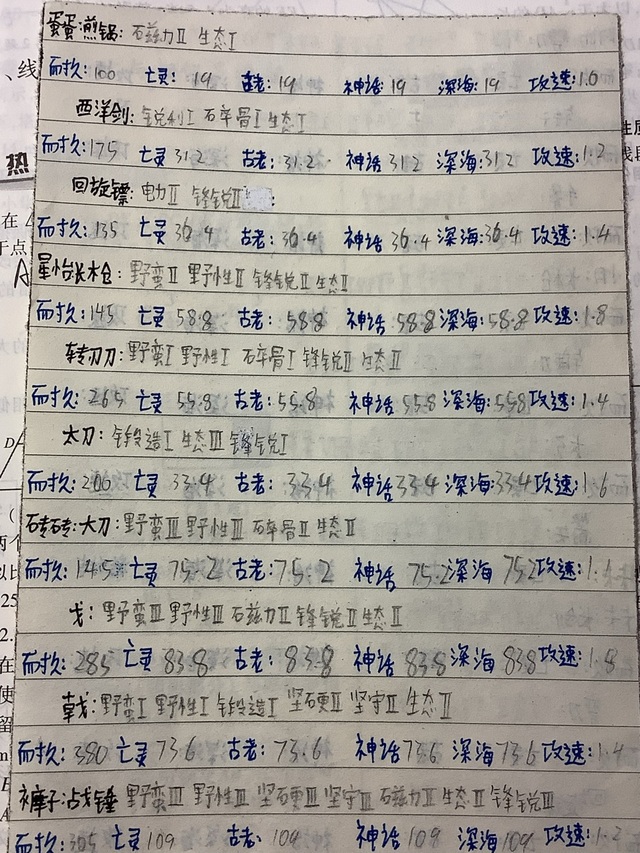 蛋蛋煎锅: 石磁力Ⅱ 生态Ⅰ
而抆: 100 亡灵: 19 古老: 19 神话: 19 深海: 19 攻速: 1.0
西洋剑: 锐利Ⅰ 石碎骨Ⅰ 生态Ⅰ
而抆: 175 亡灵 31.2 古老: 31.2 神话 31.2 深海: 31.2 攻速: 1.2
回旋镖: 电力Ⅱ 锋锐Ⅱ
而抆: 135 亡灵 36.4 古老: 36.4 神话 36.4 深海: 36.4 攻速: 1.4
长木仓: 野蛮Ⅱ 野性Ⅱ 锋锐Ⅱ 生态Ⅱ
而抆: 145 亡灵 58.8 古老: 58.8 神话 58.8 深海: 58.8 攻速: 1.8
转刃刀: 野蛮Ⅰ 野性Ⅰ 石碎骨Ⅰ 锋锐Ⅱ 生态Ⅱ
而抆: 265 亡灵 55.8 古老: 55.8 神话 55.8 深海: 55.8 攻速: 1.4
太刀: 锻造Ⅰ 生态Ⅲ 锋锐Ⅰ
而抆: 200 亡灵 33.4 古老: 33.4 神话 33.4 深海: 33.4 攻速: 1.6
砖砖: 大刀: 野蛮Ⅲ 野性Ⅲ 碎骨Ⅱ 生态Ⅱ
而抆: 145 亡灵 75.2 古老: 75.2 神话 75.2 深海 75.2 攻速: 1.
戈: 野蛮Ⅲ 野性Ⅲ 石磁力Ⅱ 锋锐Ⅱ 生态Ⅱ
而抆: 285 亡灵 83.8 古老: 83.8 神话 83.8 深海 83.8 攻速: 1.8
戟: 野蛮Ⅰ 野性Ⅰ 锻造Ⅰ 坚硬Ⅱ 坚守Ⅱ 生态Ⅱ
而抆: 380 亡灵 73.6 古老: 73.6 神话 73.6 深海 73.6 攻速: 1.4
裤子: 战锤 野蛮Ⅲ 野性Ⅲ 坚硬Ⅲ 坚守Ⅲ 石磁力Ⅱ 生态Ⅱ 锋锐Ⅲ
而抆: 305 亡灵 109 古老: 109 神话 109 深海 109 攻速: 1.2